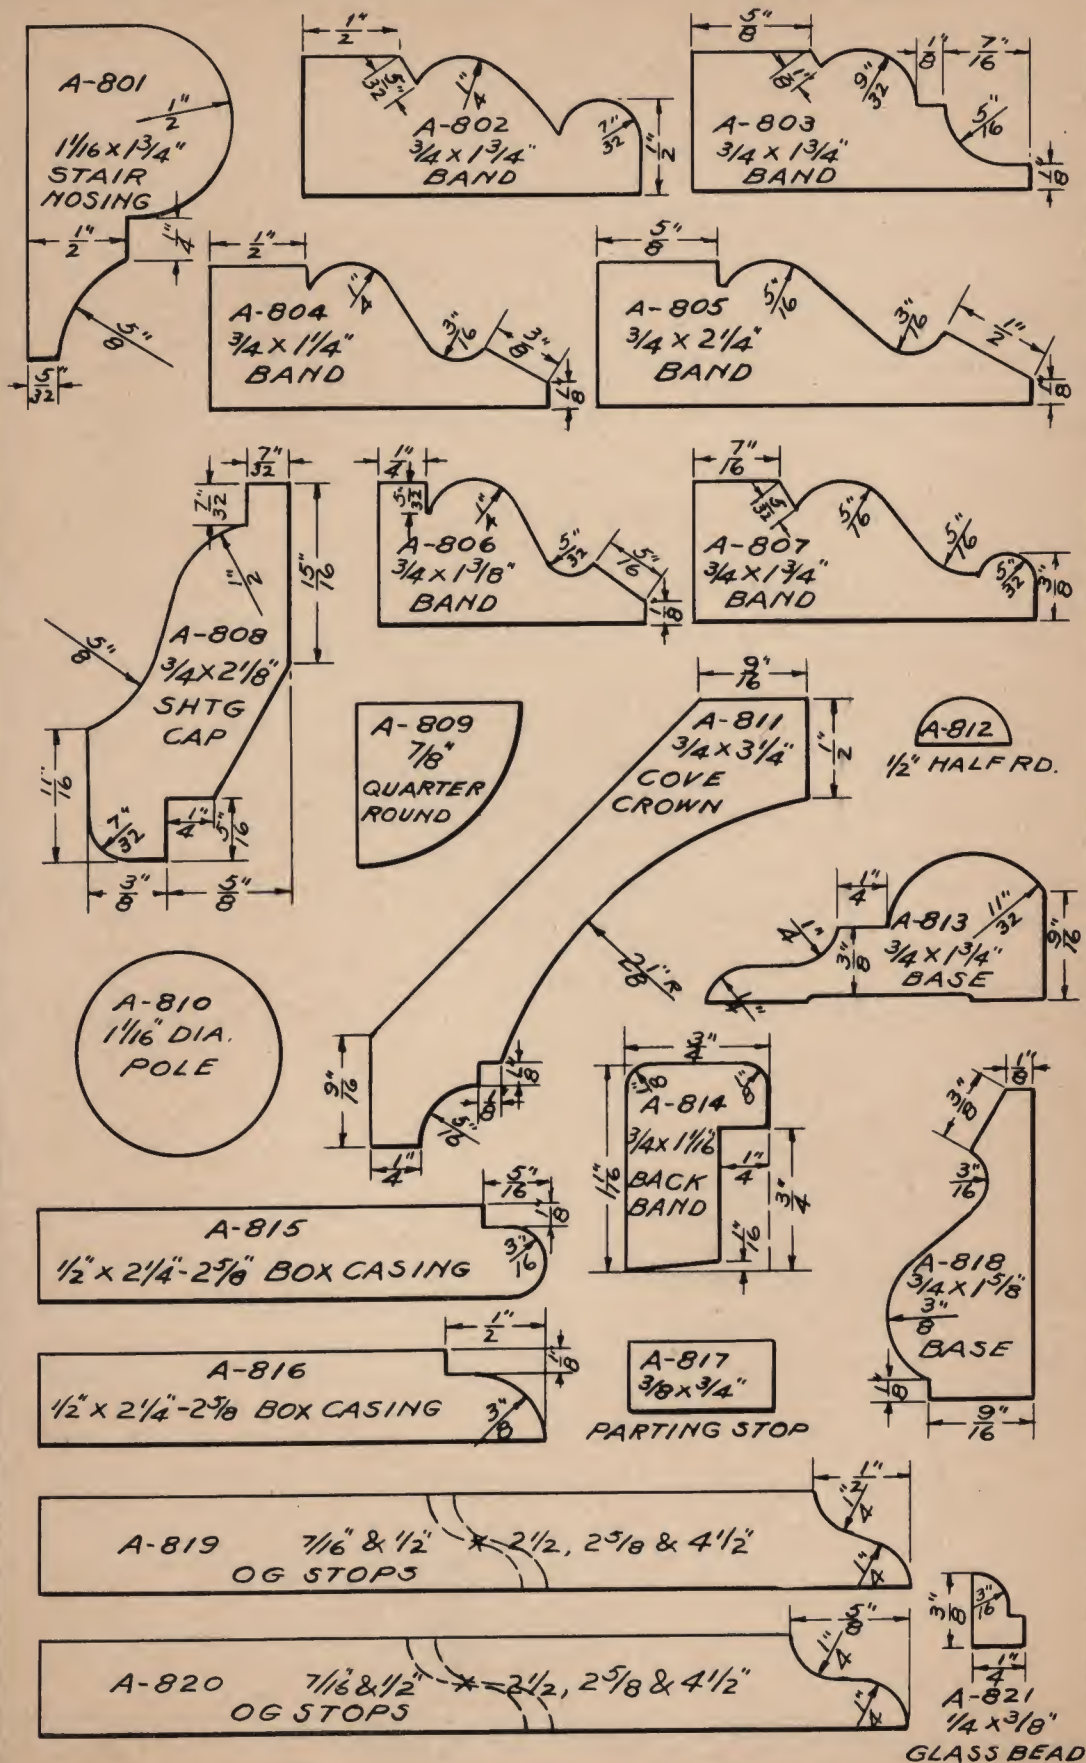 A-801
1 1/16 x 1 3/4"
STAIR
NOSING
1/2"
1/4"
1/2"
5/8"
5/32"
1/2"
5/32"
1/4"
A-802
3/4 x 1 3/4"
BAND
7/32"
1/2"
5/8"
1/8"
7/16"
1/8"
9/32"
A-803
3/4 x 1 3/4"
BAND
5/16"
1/8"
1/2"
1/4"
A-804
3/4 x 1 1/4"
BAND
3/16"
3/8"
1/8"
5/8"
5/16"
A-805
3/4 x 2 1/4"
BAND
3/16"
1/2"
1/8"
7/32"
7/32"
1/2"
15/16"
5/8"
A-808
3/4 x 2 1/8"
SHTG
CAP
11/16"
7/32"
1/4"
5/16"
3/8"
5/8"
1/4"
5/32"
1/4"
A-806
3/4 x 1 3/8"
BAND
5/32"
5/16"
1/8"
7/16"
5/32"
5/16"
A-807
3/4 x 1 3/4"
BAND
5/16"
5/32"
3/8"
A-809
7/8"
QUARTER
ROUND
9/16"
A-811
3/4 x 3 1/4"
COVE
CROWN
1/2"
2 1/8" R
9/16"
1/8"
1/8"
5/16"
1/4"
A-812
1/2" HALF RD.
A-810
1 1/16" DIA.
POLE
1/4"
1/4"
A-813
3/4 x 1 3/4"
BASE
11/32"
3/8"
9/16"
1/4"
3/4"
1/8"
1/8"
A-814
3/4 x 1 1/16"
BACK
BAND
1 1/16"
1/4"
3/4"
1/16"
1/8"
3/8"
3/16"
A-818
3/4 x 1 5/8"
3/8"
BASE
1/8"
9/16"
5/16"
1/8"
A-815
1/2" x 2 1/4"-2 5/8" BOX CASING
3/16"
1/2"
1/8"
A-816
1/2" x 2 1/4"-2 5/8 BOX CASING
3/8"
A-817
3/8 x 3/4"
PARTING STOP
1/2"
1/4"
A-819 7/16" & 1/2" x 2 1/2, 2 5/8 & 4 1/2"
OG STOPS
1/4"
5/8"
1/4"
A-820 7/16 & 1/2" x 2 1/2, 2 5/8 & 4 1/2"
OG STOPS
1/4"
3/8"
3/16"
1/4"
A-821
1/4 x 3/8"
GLASS BEAD